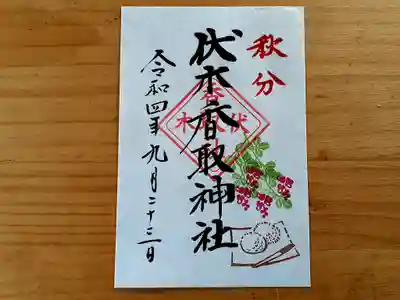 秋分
伏木香取神社
令和四年九月二十三日
香
伏
木